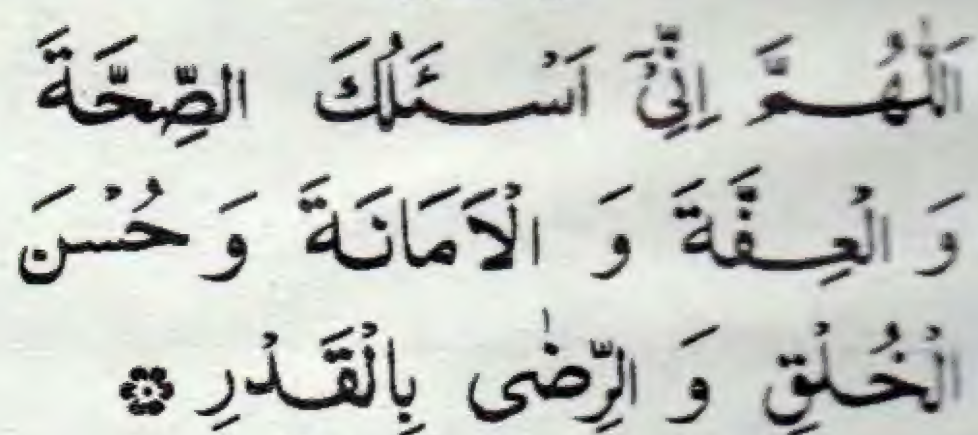 اَللّٰهُمَّ اِنِّیْۤ اَسْئَلُكَ الصِّحَّةَ
وَ الْعِفَّةَ وَ الْاَمَانَةَ وَ حُسْنَ
الْخُلْقِ وَ الرِّضٰى بِالْقَدْرِ